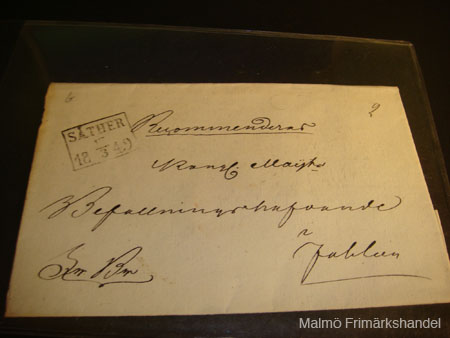 6
2
SÄTHER
17
18 3 49
Recommenderas
Kongl Maijts
Befallningshafvande
i
Fahlun
Fr Br
Malmö Frimärkshandel